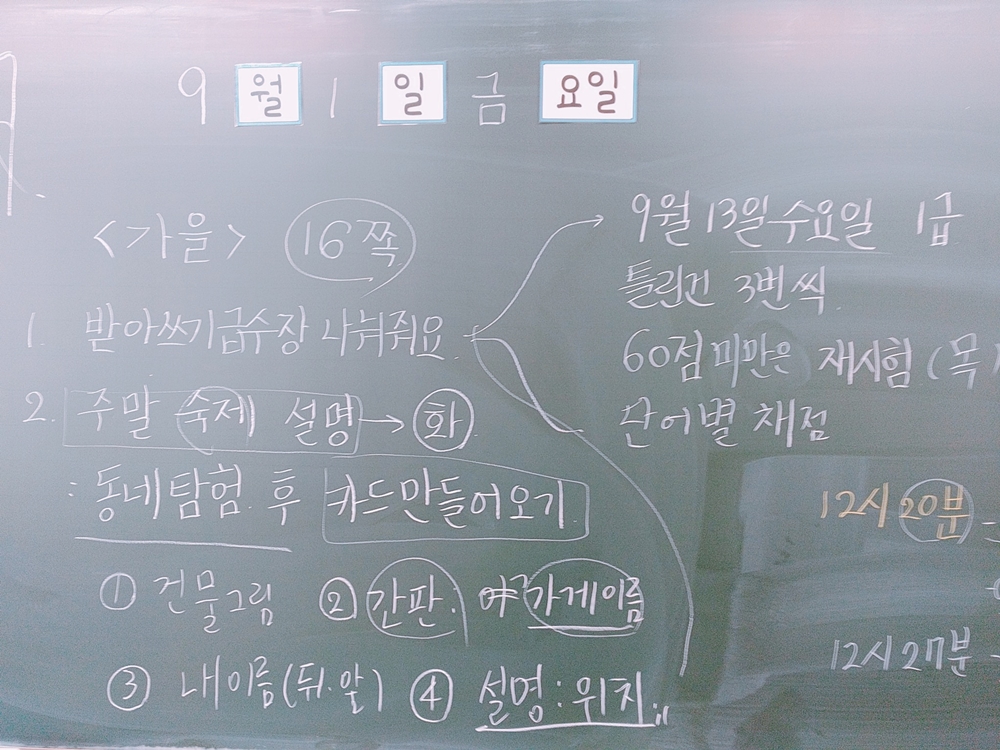 9 월 1 일 금 요일
<가을> 16쪽
1. 받아쓰기급수장 나눠줘요.
2. 주말 숙제 설명 → 화
: 동네탐험 후 카드만들어오기
① 건물그림 ② 간판: 가게이름
③ 내이름(뒤.앞) ④ 설명: 위치
9월 13일 수요일 1급
틀린건 3번씩
60점 미만은 재시험 (목
단어별 채점
12시 20분
12시 27분